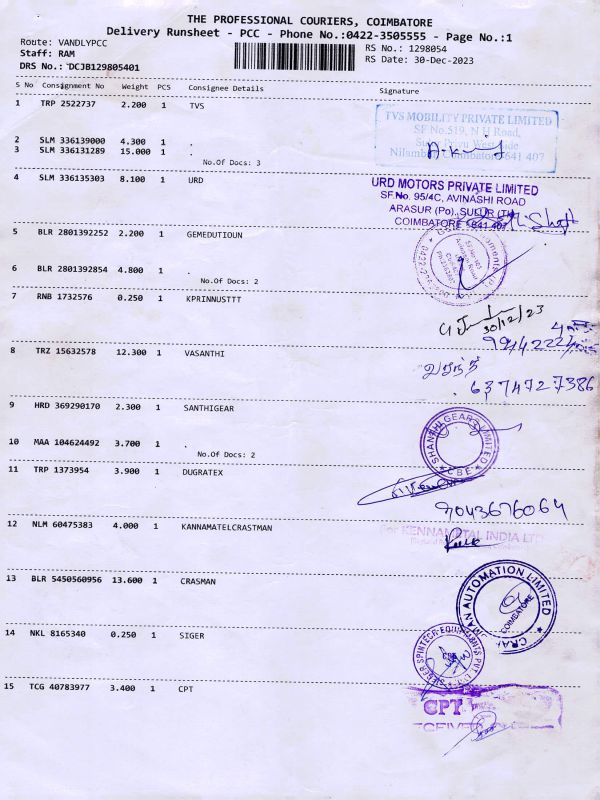 THE PROFESSIONAL COURIERS, COIMBATORE
Delivery Runsheet - PCC - Phone No.:0422-3505555 - Page No.:1
Route: VANDLYPCC
RS No.: 1298054
Staff: RAM
RS Date: 30-Dec-2023
DRS No.: DCJB129805401
S No Consignment No Weight PCS Consignee Details Signature
1 TRP 2522737 2.200 1 TVS
TVS MOBILITY PRIVATE LIMITED
SF No.519, N H Road,
2 SLM 336139000 4.300 1 .
3 SLM 336131289 15.000 1 .
No.Of Docs: 3
4 SLM 336135303 8.100 1 URD
URD MOTORS PRIVATE LIMITED
SF.No. 95/4C, AVINASHI ROAD
ARASUR (Po), SULUR (TK)
COIMBATORE - 641 407
5 BLR 2801392252 2.200 1 GEMEDUTIOUN
6 BLR 2801392854 4.800 1 .
No.Of Docs: 2
7 RNB 1732576 0.250 1 KPRINNUSTTT
30/12/23
8 TRZ 15632578 12.300 1 VASANTHI
6374727386
9 HRD 369290170 2.300 1 SANTHIGEAR
SHANTHI GEARS LIMITED
CBE
10 MAA 104624492 3.700 1 .
No.Of Docs: 2
11 TRP 1373954 3.900 1 DUGRATEX
9043676064
12 NLM 60475383 4.000 1 KANNAMATELCRASTMAN
For KENNAMETAL INDIA LTD
13 BLR 5450560956 13.600 1 CRASMAN
AUTOMATION LIMITED
COIMBATORE
14 NKL 8165340 0.250 1 SIGER
15 TCG 40783977 3.400 1 CPT
CPT